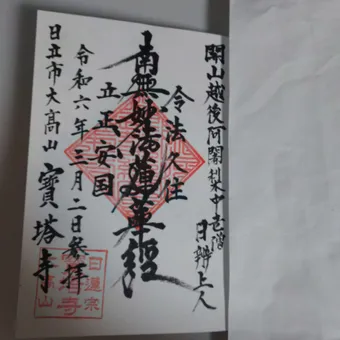 開山越後阿闍梨中老僧日辨上人
令法久住
南無妙法蓮華經
立正安国
令和六年三月二日参拝
日立市大髙山寶塔寺
日蓮宗